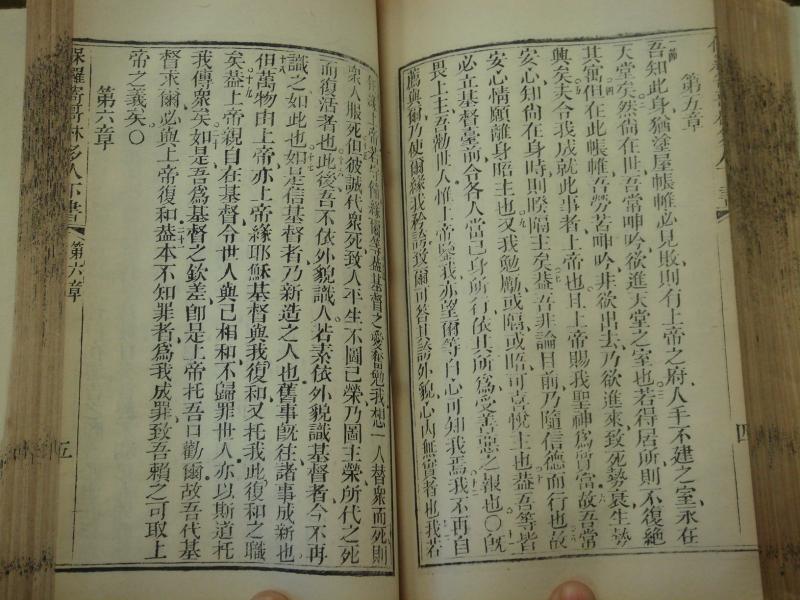 第五章
吾知此身猶塗屋帳帷必見敗則有上帝之府人手不建之室永在
天堂矣然尚在世吾當呻吟欲進天堂之室也若得居所則不復絶
其寓但在此帳帷吾勞苦呻吟非欲出去乃欲進來致死勢衰生勢
興矣夫令我成就此事者上帝也且上帝賜我聖神為質當故吾當
安心知尚在身時則暌隔主矣蓋吾非論目前乃隨信德而行也故
安心情願離身晤主也又我勉勵或隔或晤可喜悅主也蓋吾等皆
必立基督臺前令各人當己身所行依其所為受善惡之報也〇既
畏上主吾勸世人惟上帝鑒我亦望爾等自心可知我焉我不再自
薦與爾乃使爾緣我矜誇致爾可答其誇外貌心內無實者也我若
上帝若 緣爾等蓋基督之愛督勉我想一人替衆而死則
衆人服死但彼誠代衆死致人平生不圖己榮乃圖主榮所代之死
而復活者也此後吾不依外貌識人若素依外貌識基督者今不再
識之如此也如是信基督者乃新造之人也舊事旣往諸事成新也
但萬物由上帝亦上帝緣耶穌基督與我復和又托我此復和之職
矣蓋上帝親自在基督令世人與己相和不歸罪世人亦以斯道托
我傳衆矣如是吾為基督之欽差卽是上帝托吾口勸爾故吾代基
督求爾必與上帝復和蓋本不知罪者為我成罪致吾賴之可取上
帝之義矣〇
第六章
保羅寄哥林多人下書
第六章
五
四